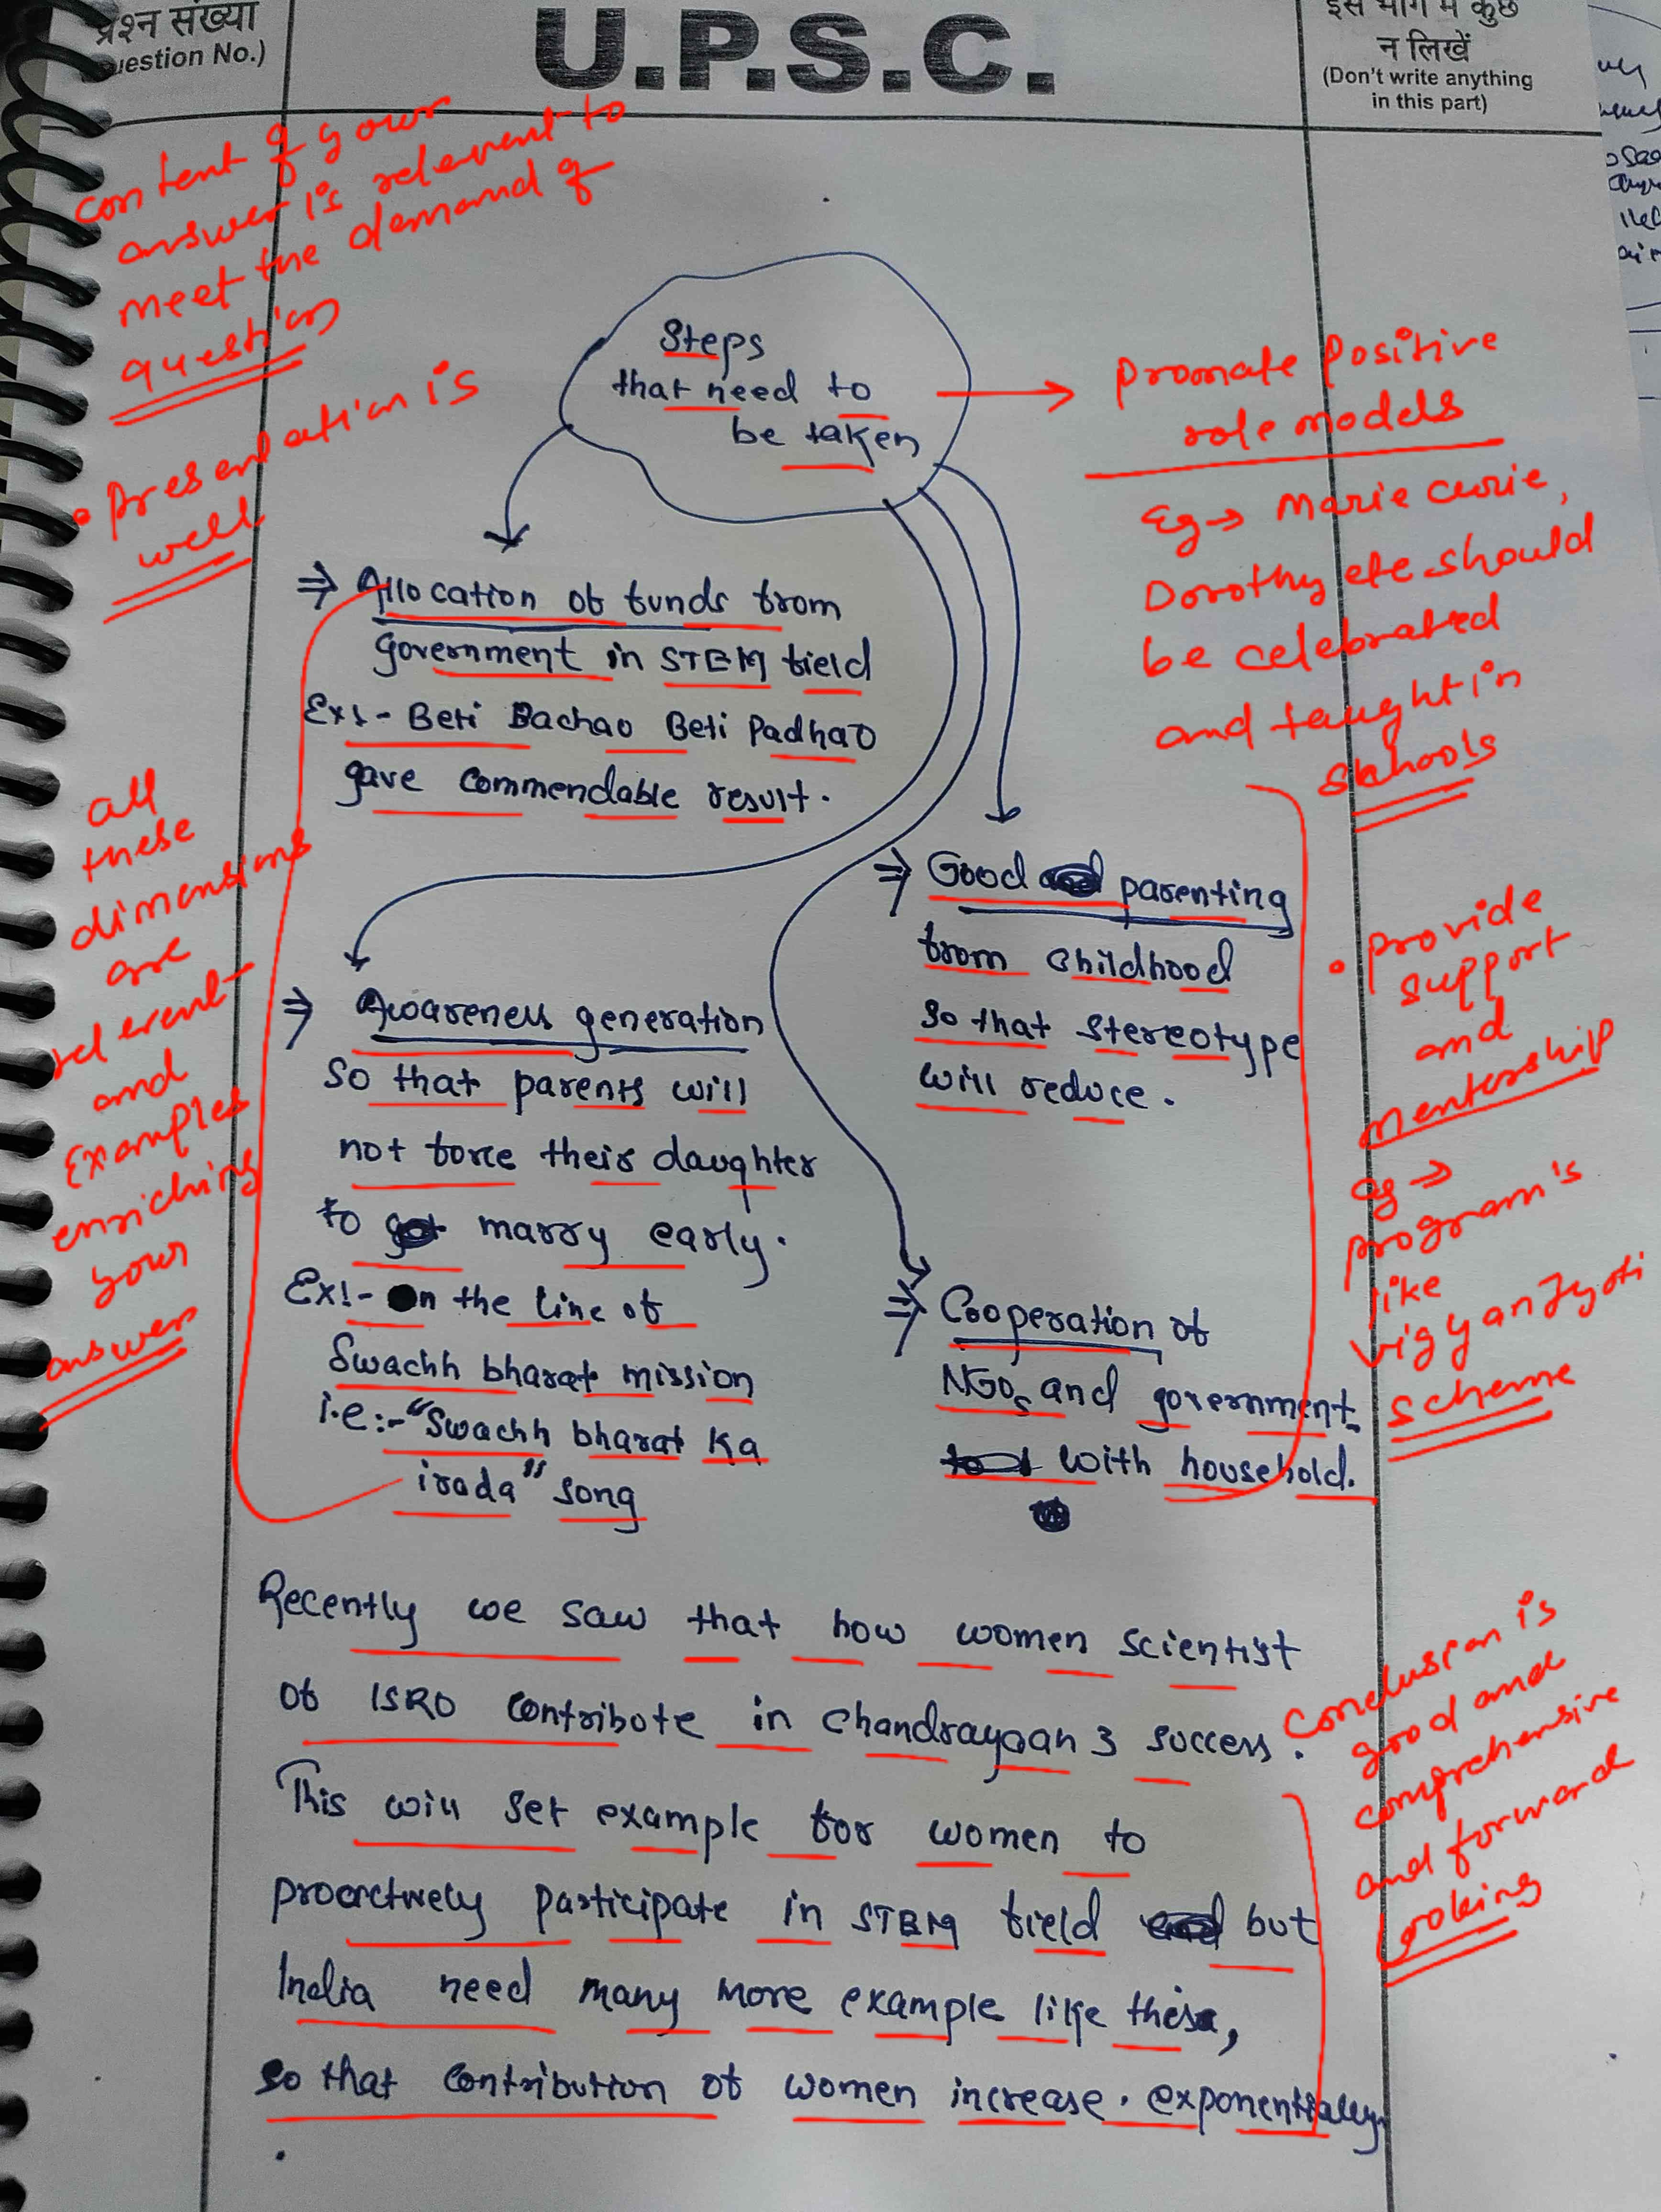 प्रश्न संख्या
uestion No.)
U.P.S.C.
इस भाग में कुछ
न लिखें
(Don't write anything
in this part)
content of your
answer is relevent to
meet the demand of
question
• Presentation is
well
Steps
that need to
be taken
Promote Positive
role models
Eg → Marie Curie,
Dorothy etc should
be celebrated
and taught in
schools
⇒ Allocation of funds from
government in STEM field
Ex:- Beti Bachao Beti Padhao
gave commendable result.
all
these
dimensions
are
relevent
and
Examples
enriching
your
answer
⇒ Awareness generation
so that parents will
not force their daughter
to marry early.
Ex:- On the line of
Swachh bharat mission
i.e:- "Swachh bharat ka
irada" song
⇒ Good parenting
from childhood
so that stereotype
will reduce.
• Provide
support
and
mentorship
eg →
program's
like
Vigyan Jyoti
scheme
⇒ Cooperation of
NGOs and government
with household.
Recently we saw that how women scientist
of ISRO contribute in Chandrayaan 3 success.
This will set example for women to
proactively participate in STEM field but
India need many more example like these,
so that contribution of women increase. exponentially.
Conclusion is
good and
comprehensive
and forward
looking